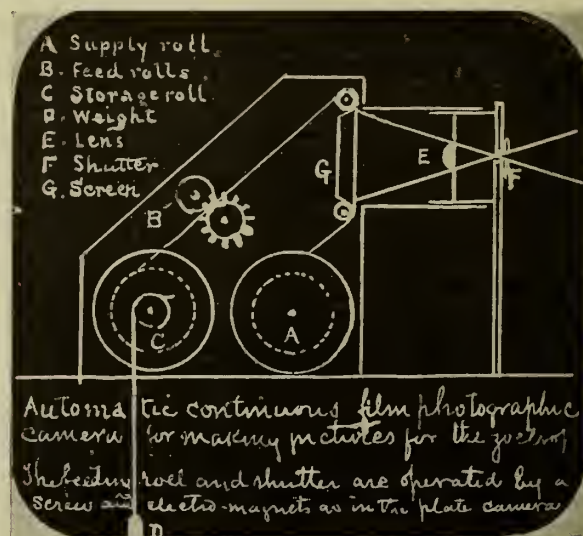 A Supply roll.
B. Feed rolls
C Storage roll
D. Weight
E. Lens
F Shutter
G. Screen
G
E
F
B
C
A
Automatic continuous film photographic
camera for making pictures for the
The feeding roll and shutter are operated by a
screw and electro-magnets as in the plate camera
D